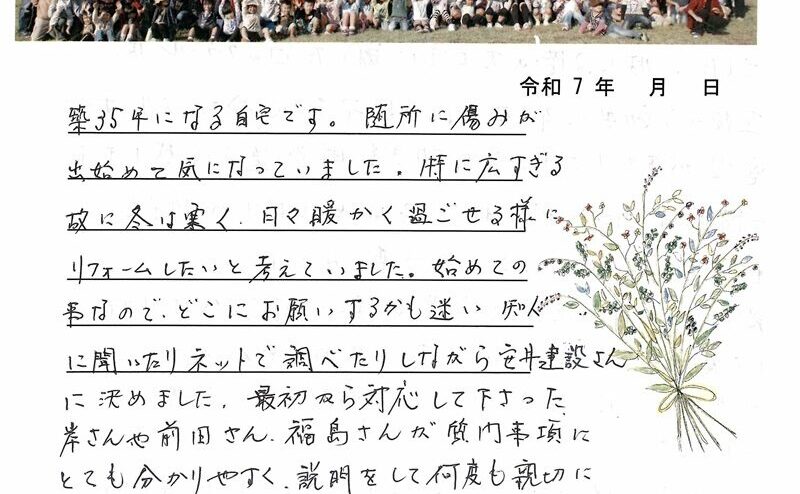 令和 7 年　月　日
築35年になる自宅です。随所に傷みが
出始めて気になっていました。特に広すぎる
故に冬は寒く、日々暖かく過ごせる様に
リフォームしたいと考えていました。始めての
事なので、どこにお願いするかも迷い 知人
に聞いたりネットで調べたりしながら安井建設さん
に決めました。最初から対応して下さった
岸さんや前田さん、福島さんが質問事項に
とても分かりやすく、説明をして何度も親切に